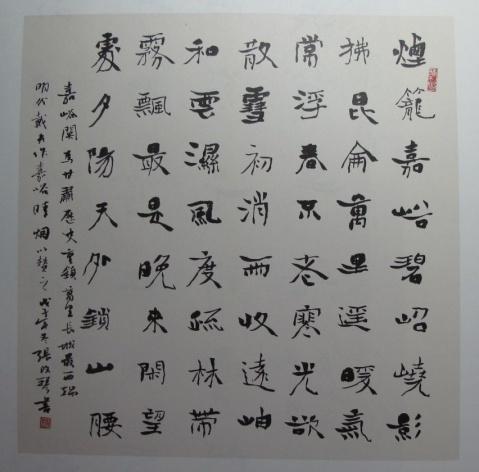 煙籠嘉峪碧岹嶢影
拂昆侖萬里遥暖氣
常浮春不老寒光欲
散雪初消雨收遠岫
和雲濕風度疏林帶
霧飄最是晚來閑望
處夕陽天外鎖山腰
嘉峪關為甘肅歷史重鎮萬里長城最西端
明代戴弁作嘉峪晴烟以贊之戊子年冬張改琴書